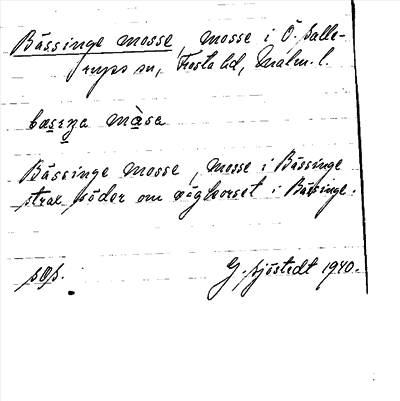 Bässinge mosse, mosse i Ö. Salle-
rups sn, Frosta hd, Malm. l.
Bässinge mosse, mosse i Bässinge
strax söder om vägkorset i Bässinge.
G. Sjöstedt 1940.